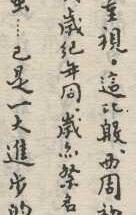 重視。這比殷、西周祈
歲紀年同。歲為祭名
……已是一大進步的